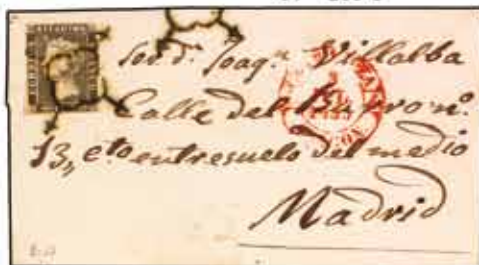 Sor. dn. Joaqn. Villalba
Calle del Burro nº.
13, cto entresuelo del medio
Madrid